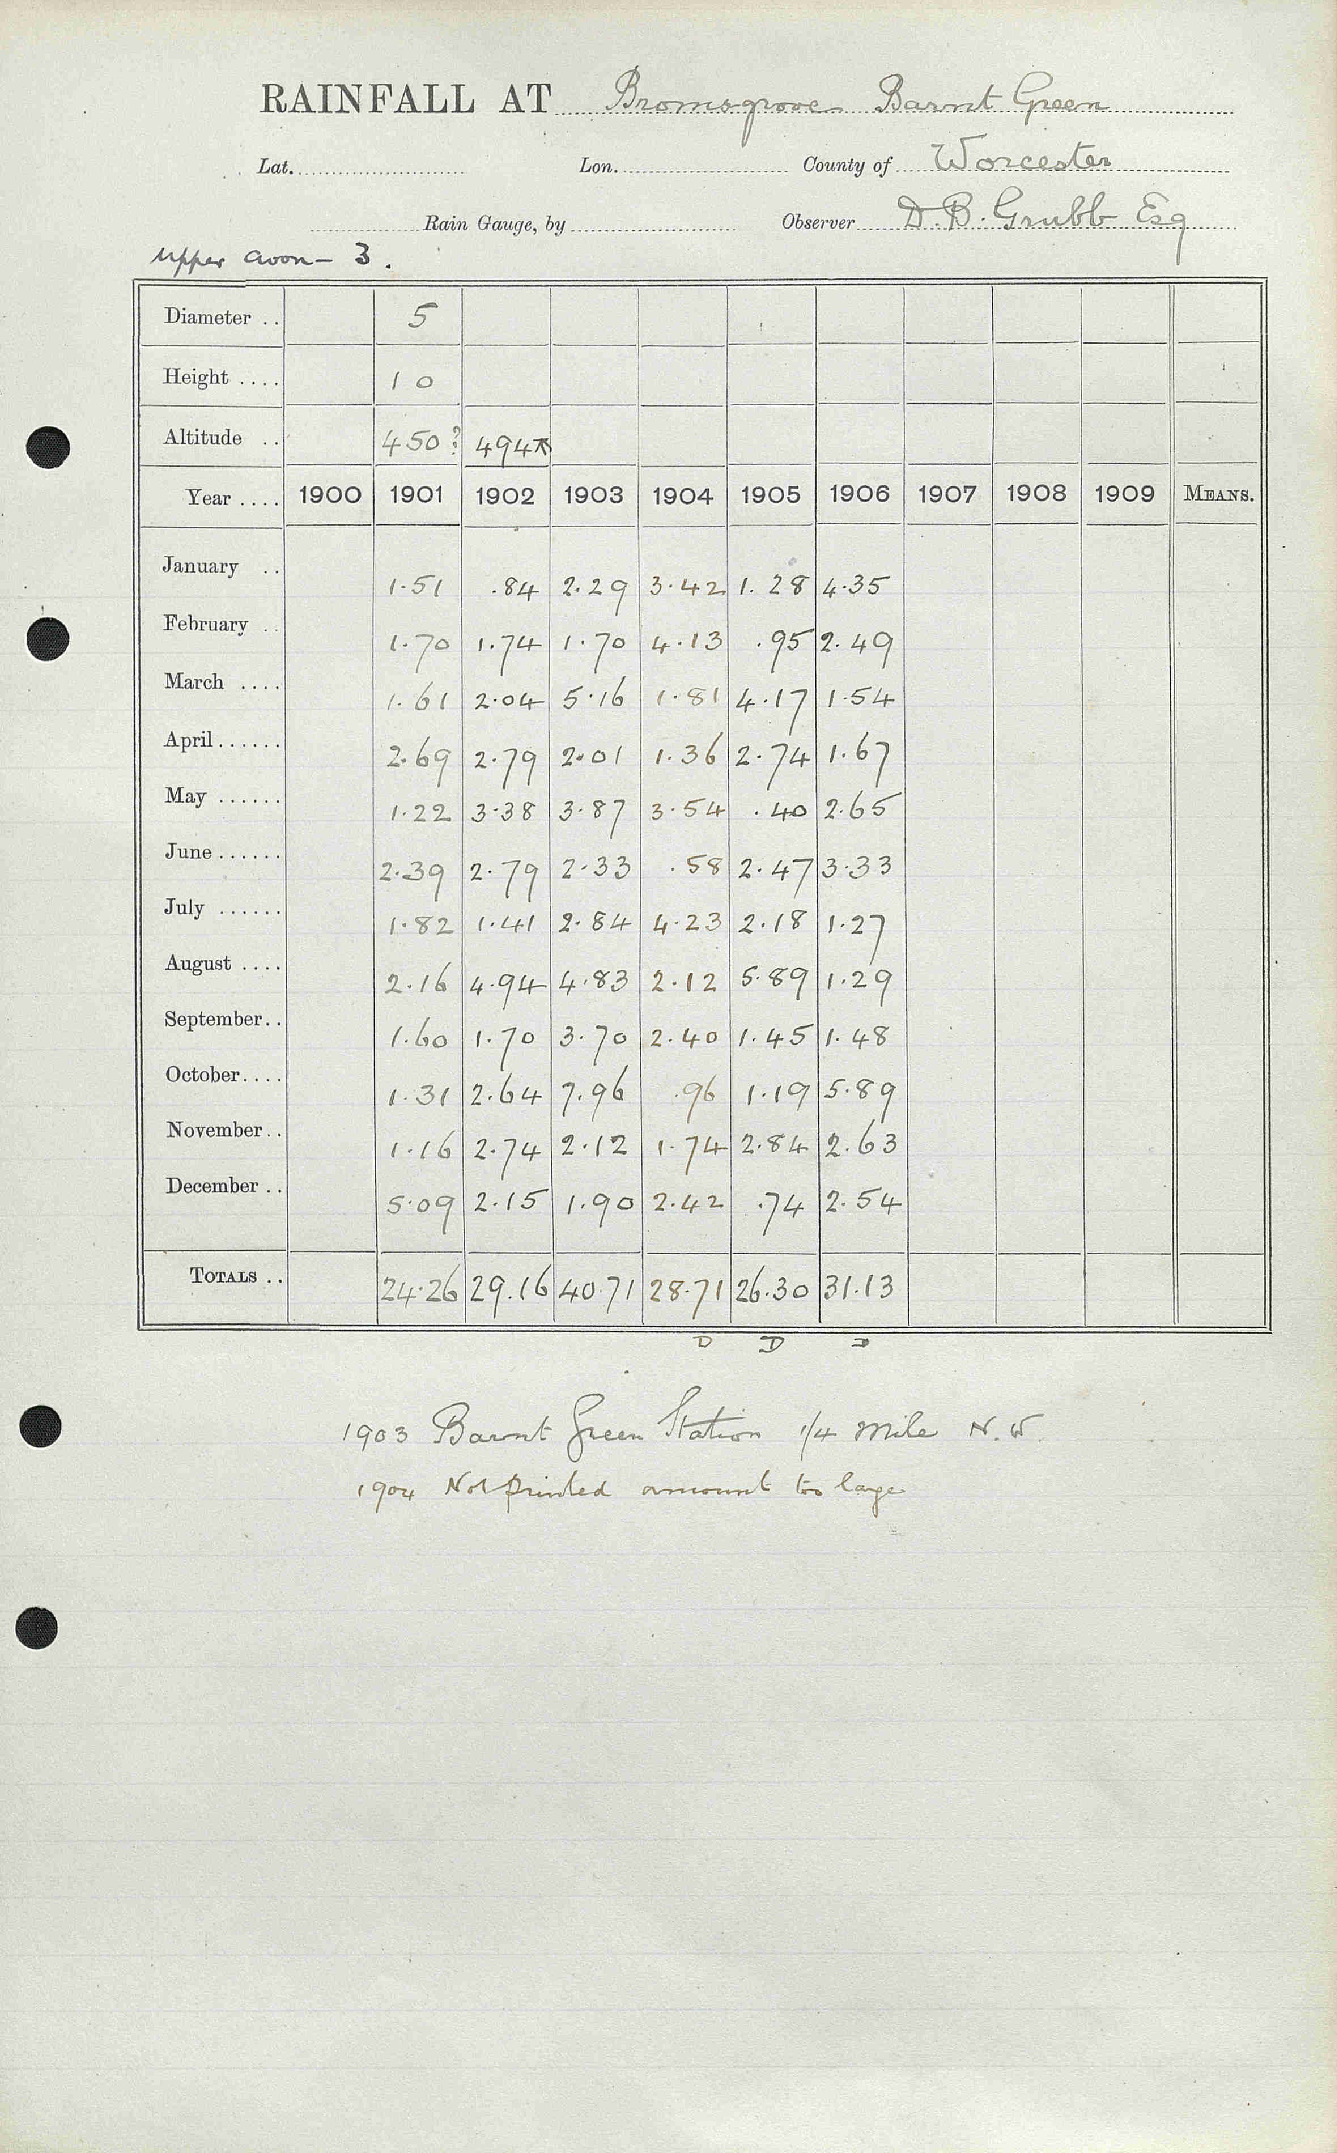 RAINFALL AT Bromsgrove Barnt Green
Lat. Lon. County of Worcester
Rain Gauge, by Observer D. B. Grubb Esq
Upper Avon - 3.
Diameter .. 5
Height .... 10
Altitude .. 450? 494
Year .... 1900 1901 1902 1903 1904 1905 1906 1907 1908 1909 MEANS.
January .. 1.51 .84 2.29 3.42 1.28 4.35
February .. 1.70 1.74 1.70 4.13 .95 2.49
March .... 1.61 2.04 5.16 1.81 4.17 1.54
April...... 2.69 2.79 2.01 1.36 2.74 1.67
May ...... 1.22 3.38 3.87 3.54 .40 2.65
June...... 2.39 2.79 2.33 .58 2.47 3.33
July ...... 1.82 1.41 2.84 4.23 2.18 1.27
August .... 2.16 4.94 4.83 2.12 5.89 1.29
September.. 1.60 1.70 3.70 2.40 1.45 1.48
October.... 1.31 2.64 7.96 .96 1.19 5.89
November.. 1.16 2.74 2.12 1.74 2.84 2.63
December .. 5.09 2.15 1.90 2.42 .74 2.54
TOTALS .. 24.26 29.16 40.71 28.71 26.30 31.13
D D D
1903 Barnt Green Station 1/4 mile N.W.
1904 Not printed amount too large